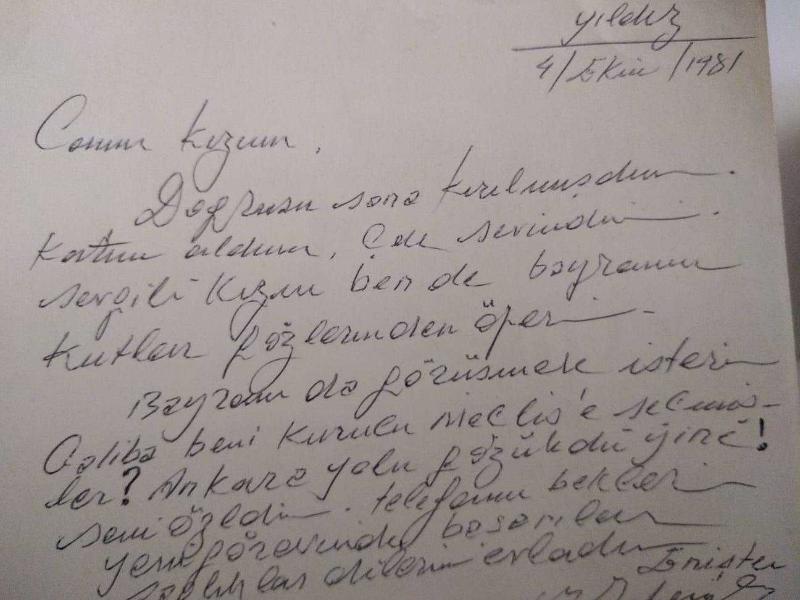 Yıldız
4/Ekim/1981
Canım kızım,
Doğrusu sana kırılmışdım.
Kartını aldım, Çok sevindim.
sevgili kızım ben de bayramını
kutlar gözlerinden öperim.
Bayram da görüşmek isterim
Galiba beni Kurucu Meclis'e seçmiş-
ler? Ankara yolu gözükdü yine!
seni özledim. telefonunu beklerim
yeni görevinde başarılar
sağlıklar dilerim evladım
Enişten